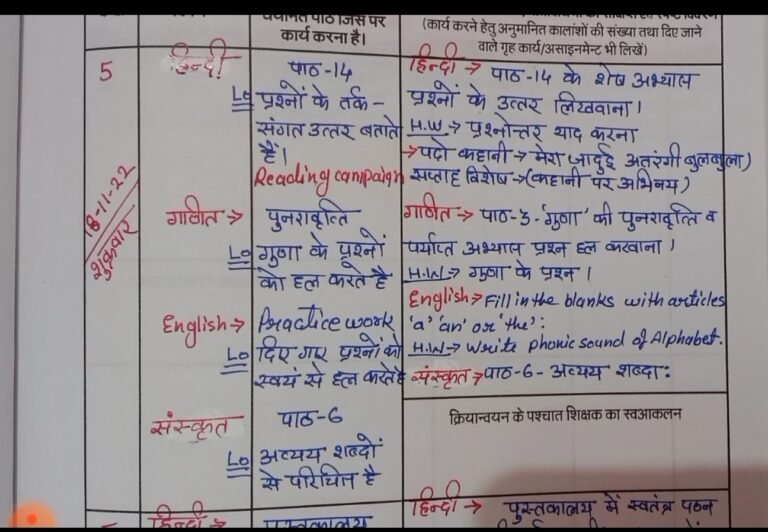 चयनित पाठ जिस पर
कार्य करना है।
(कार्य करने हेतु अनुमानित कालांशों की संख्या तथा दिए जाने
वाले गृह कार्य/असाइनमेन्ट भी लिखें)
5
18-11-22
शुक्रवार
हिन्दी
पाठ-14
Lo प्रश्नों के तर्क-
संगत उत्तर बताते
हैं।
Reading campaign
गणित → पुनरावृत्ति
Lo गुणा के प्रश्नों
को हल करते है
English → Practice work
Lo दिए गए प्रश्नों को
स्वयं से हल करते है
संस्कृत पाठ-6
Lo अव्यय शब्दों
से परिचित है
हिन्दी → पाठ-14 के शेष अभ्यास
प्रश्नों के उत्तर लिखवाना।
H.W. → प्रश्नोत्तर याद करना
→पढो कहानी → मेरा जादुई अतरंगी बुलबुला)
सप्ताह विशेष → (कहानी पर अभिनय)
गणित → पाठ-3-'गुणा' की पुनरावृत्ति व
पर्याप्त अभ्यास प्रश्न हल करवाना।
H.W → गुणा के प्रश्न।
English → Fill in the blanks with articles
'a' 'an' or 'the':
H.W → Write phonic sound of Alphabet.
संस्कृत → पाठ-6- अव्यय शब्दा:
क्रियान्वयन के पश्चात शिक्षक का स्वआकलन
हिन्दी
पुस्तकालय
हिन्दी → पुस्तकालय में स्वतंत्र पठन